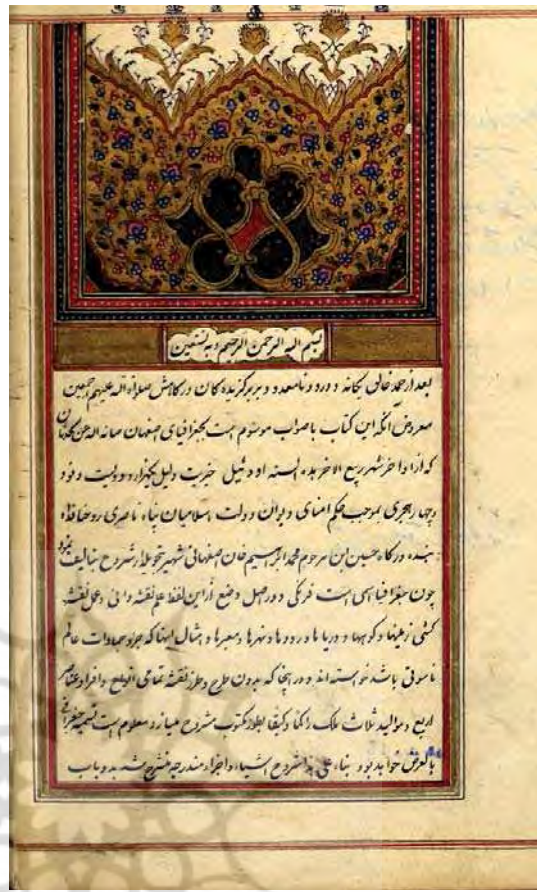 بسم الله الرحمن الرحیم وبه نستعین
بعد از حمد خالق یگانه و درود نامعدود بر برگزیده کان درگاهش صلواة الله علیهم اجمعین
معروض آنکه این کتاب با صواب موسوم است بجغرافیای صفهان صانه الله عن
که از اواخر شهر ربیع الاخر هذه السنه اودئیل خیریت دلیل یکهزار و دویست و نود
و چهار هجری بموجب حکم امنای دیوان دولت اسلامیان پناه ناصری روحنافداه
بنده درگاه حسین ابن مرحوم محمد ابراهیم خان اصفهانی شهیر بتحویلدار شروع بتالیف نمود
چون جغرافیا اسمی است فرنگی و در اصل وضع از این لفظ علم نقشه دانی و عمل نقشه
کشی زمینها و کوهها و دریاها و رودها و نهرها و معبرها و امثال اینها که جزو جمادات عالم
ناسوتی باشد خواسته اند و در اینجا که بدون طرح و طرز نقشه تمامی انواع و افراد عناصر
اربع و موالید ثلاث ملک را کما و کیفا بطور مکتوب مشروح میدارد معلوم است تسمیه جغرافی
بالعرض خواهد بود بناء علی هذا شروع اشیاء و اجزاء مندرجه منشرح شد بدو باب